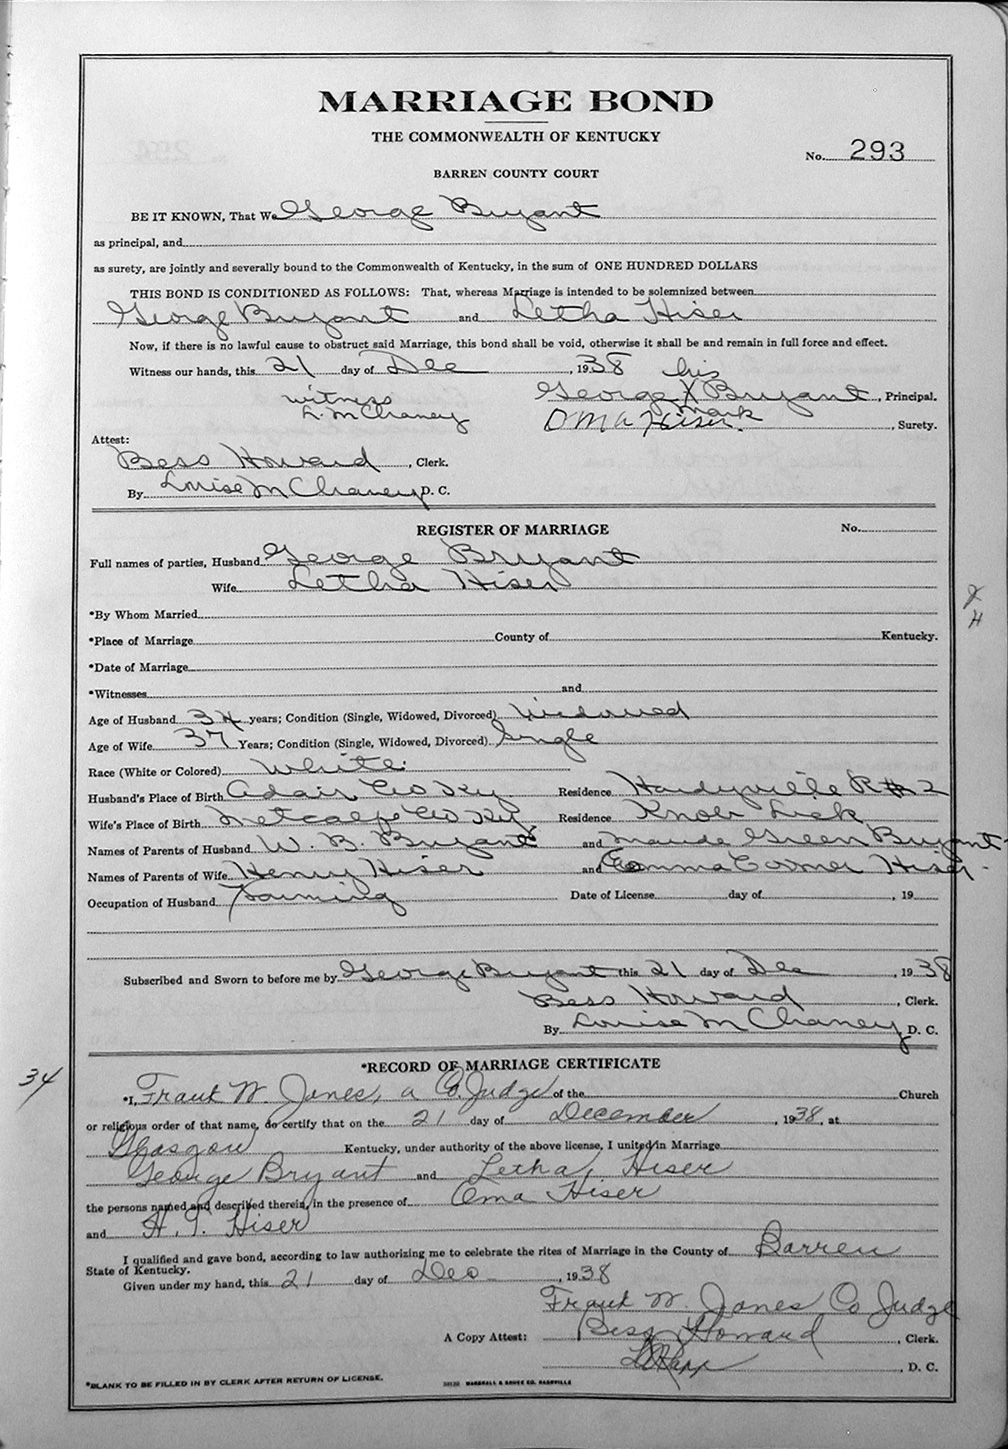 MARRIAGE BOND
THE COMMONWEALTH OF KENTUCKY
No. 293
BARREN COUNTY COURT
BE IT KNOWN, That We George Bryant
as principal, and
as surety, are jointly and severally bound to the Commonwealth of Kentucky, in the sum of ONE HUNDRED DOLLARS
THIS BOND IS CONDITIONED AS FOLLOWS: That, whereas Marriage is intended to be solemnized between
George Bryant and Letha Hiser
Now, if there is no lawful cause to obstruct said Marriage, this bond shall be void, otherwise it shall be and remain in full force and effect.
Witness our hands, this 21 day of Dec , 1938
his
witness George X Bryant , Principal.
L. M Chaney mark
Oma Hiser. , Surety.
Attest:
Bess Howard , Clerk.
By Louise M Chaney D. C.
REGISTER OF MARRIAGE No.
Full names of parties, Husband George Bryant
Wife Letha Hiser
*By Whom Married
*Place of Marriage County of Kentucky.
*Date of Marriage
*Witnesses and
Age of Husband 34 years; Condition (Single, Widowed, Divorced) Widowed
Age of Wife 37 Years; Condition (Single, Widowed, Divorced) Single
Race (White or Colored) White
Husband's Place of Birth Adair Co Ky. Residence Hardyville R#2
Wife's Place of Birth Metcalfe Co Ky Residence Knob Lick
Names of Parents of Husband W. B. Bryant and Maude Green Bryant
Names of Parents of Wife Henry Hiser and Emma Hiser
Occupation of Husband Farming Date of License day of , 19
Subscribed and Sworn to before me by George Bryant this 21 day of Dec , 1938
Bess Howard , Clerk.
By Louise M Chaney D. C.
*RECORD OF MARRIAGE CERTIFICATE
34
*I, Frank W. Jones, a Co. Judge of the Church
or religious order of that name, do certify that on the 21 day of December , 1938, at
Glasgow Kentucky, under authority of the above license, I united in Marriage
George Bryant and Letha Hiser
the persons named and described therein, in the presence of Oma Hiser
and H. T. Hiser
I qualified and gave bond, according to law authorizing me to celebrate the rites of Marriage in the County of Barren
State of Kentucky.
Given under my hand, this 21 day of Dec , 1938
Frank W. Jones, Co Judge
A Copy Attest: Bess Howard , Clerk.
D. C.
*BLANK TO BE FILLED IN BY CLERK AFTER RETURN OF LICENSE.
MARSHALL & BRUCE CO. NASHVILLE